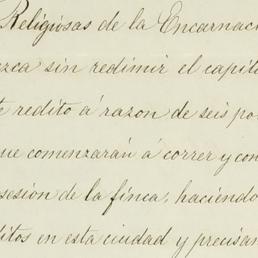 Religiosas de la Encarnaci
ezca sin redimir el capit
e redito á razon de seis po
ue comenzarán á correr y con
sesion de la finca, haciendo
ditos en esta ciudad y precisam